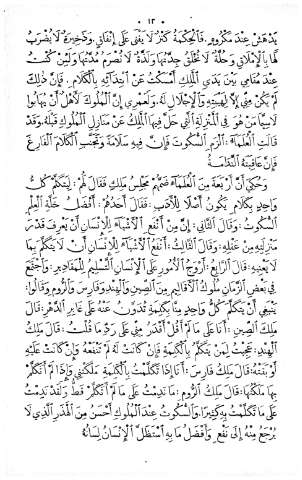 ١٣
يدهش عند مكروه. فالحكمة كنز لا يفنى على إنفاق. وذخيرة لا يضرب
لها بالإملاق. وحلة لا تخلق جدتها ولذة لا تصرم مدتها ولئن كنت
عند مقامي بين يدي الملك أمسكت عن ابتدائه بالكلام. فإن ذلك
لم يكن مني إلا لهيبته والإجلال له ولعمري إن الملوك لأهل أن يهابوا
لا سيما من هو في المنزلة التي حل فيها الملك عن منازل الملوك قبله. وقد
قالت العلماء: الزم السكوت فإن فيه سلامة وتجنب الكلام الفارغ
فإن عاقبته الندامة
وحكي أن أربعة من العلماء ضمهم مجلس ملك فقال لهم: ليتكلم كل
واحد بكلام يكون أصلا للأدب. فقال أحدهم: أفضل خلة العلم
السكوت: وقال الثاني: إن من أنفع الأشياء للإنسان أن يعرف قدر
منزلته من عقله. وقال الثالث: أنفع الأشياء للإنسان أن لا يتكلم بما
لا يعنيه: قال الرابع: أروح الأمور على الإنسان التسليم للمقادير. واجتمع
في بعض الزمان ملوك الأقاليم من الصين والهند وفارس والروم وقالوا:
ينبغي أن يتكلم كل واحد منا بكلمة تدون عنه على غابر الدهر: قال
ملك الصين: أنا على ما لم أقل أقدر مني على رد ما قلت: قال ملك
الهند: عجبت لمن يتكلم بالكلمة فإن كانت له لم تنفعه وإن كانت عليه
أوبقته: قال ملك فارس: أنا إذا تكلمت بالكلمة ملكتني وإذا لم أتكلم
بها ملكتها: قال ملك الروم: ما ندمت على ما لم أتكلم به قط ولقد ندمت
على ما تكلمت به كثيرا. والسكوت عند الملوك أحسن من الهذر الذي لا
يرجع منه إلى نفع وأفضل ما به استظل الإنسان لسانه